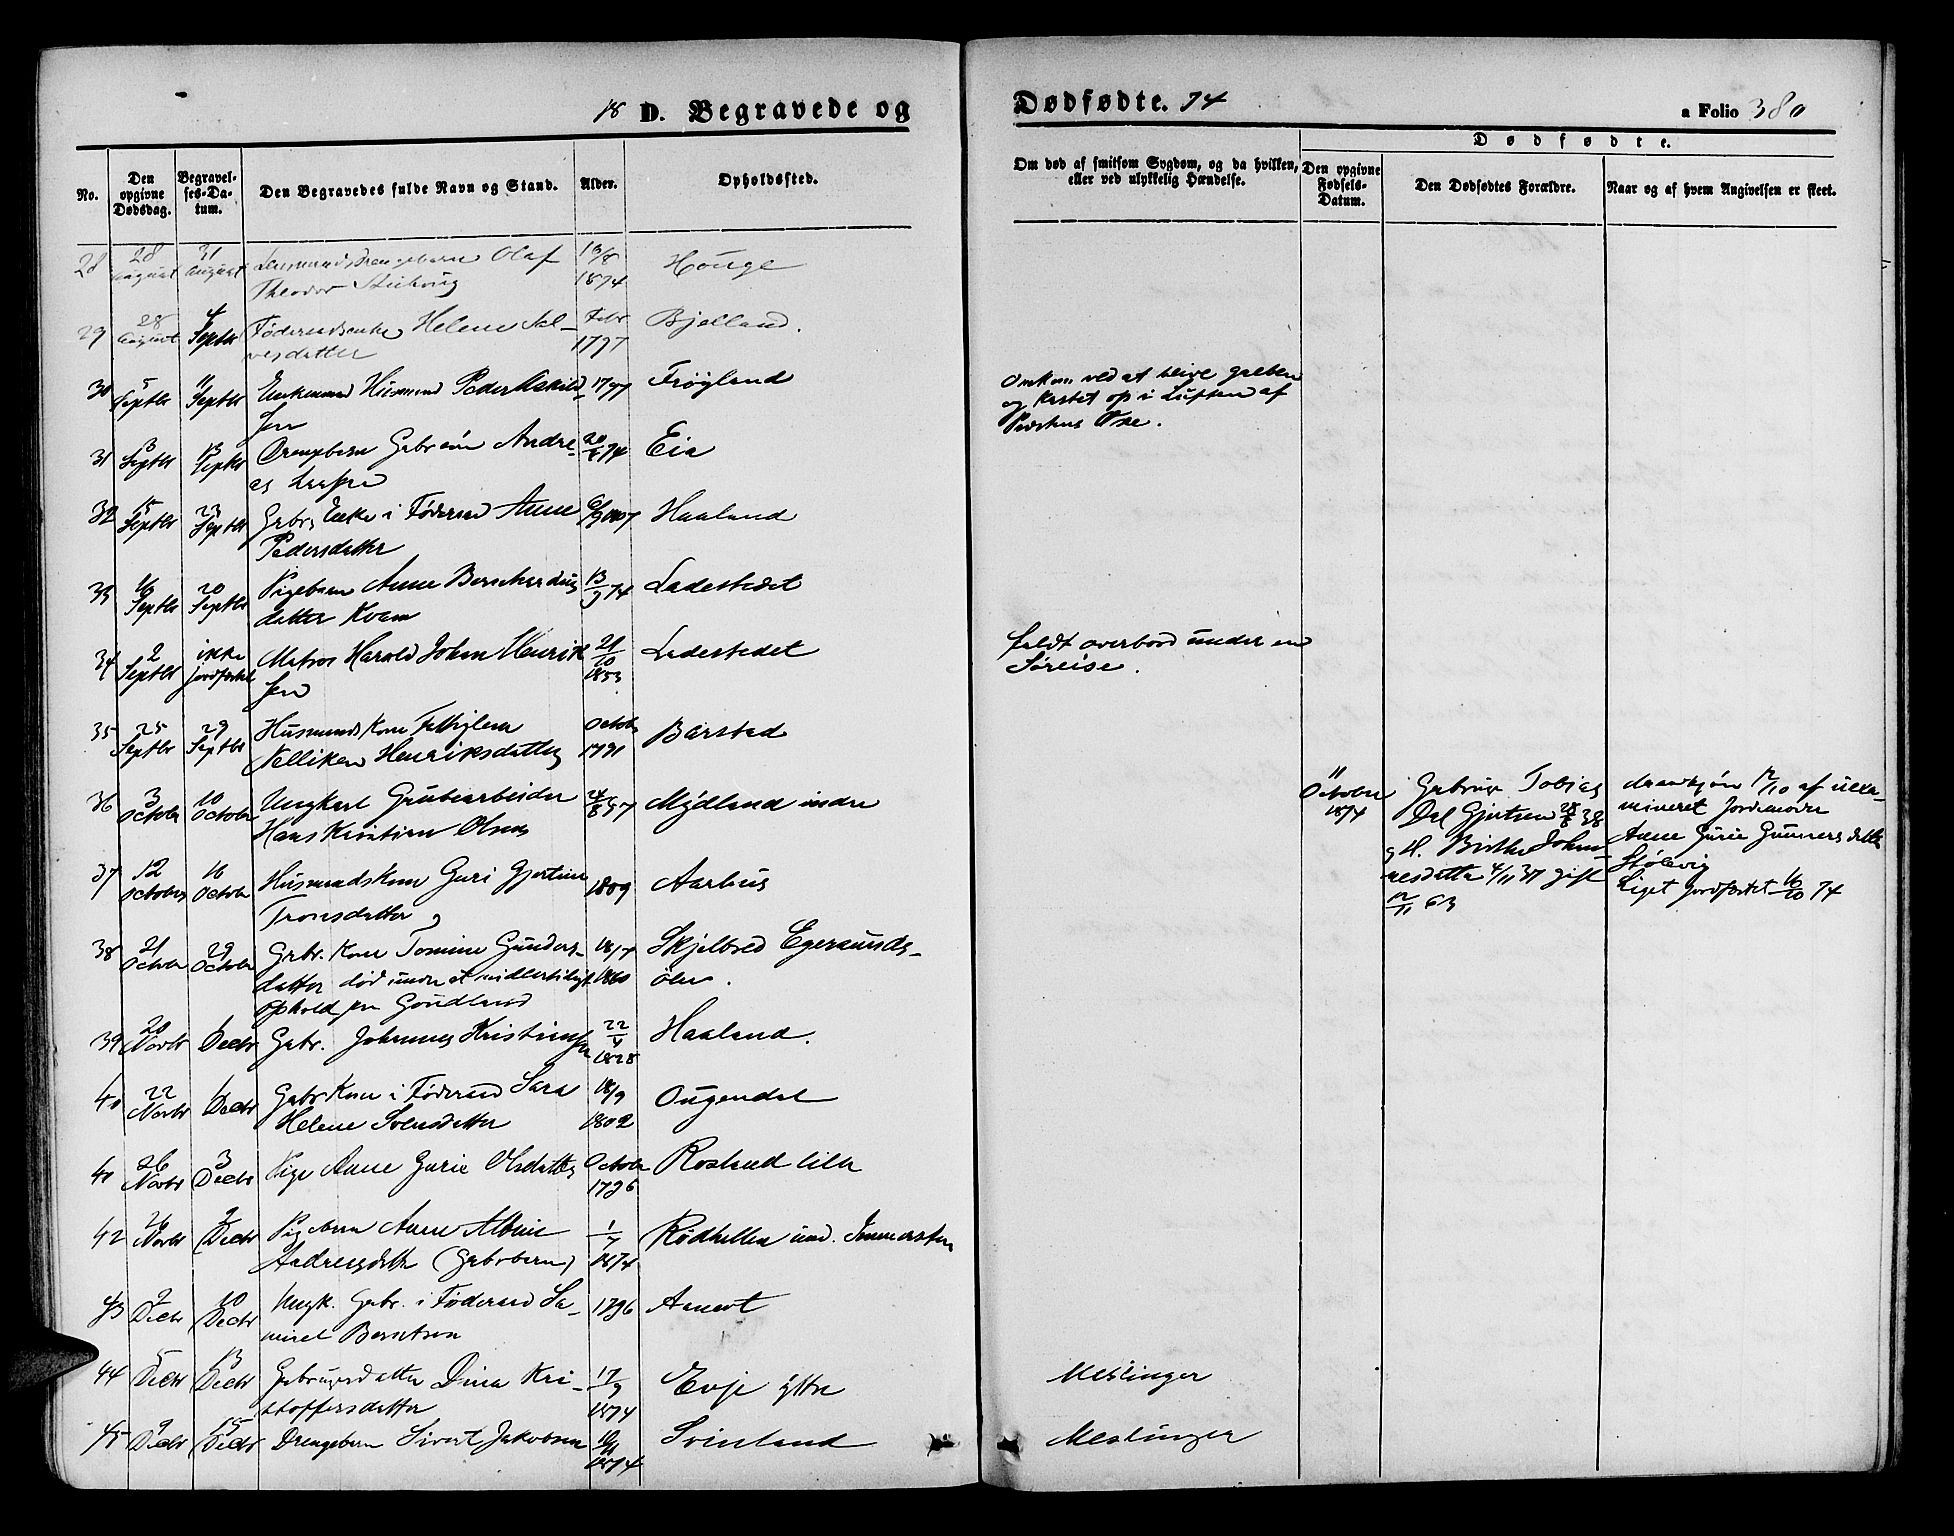 18 D. Begravede og
Dødfødte. 74
a Folio 380
No.
Den opgivne Dødsdag.
Begravelses-Datum.
Den Begravedes fulde Navn og Stand.
Alder.
Opholdssted.
Om død af smitsom Sygdom, og da hvilken, eller ved ulykkelig Hændelse.
Dødfødte.
Den opgivne Fødsels-Datum.
Den Dødfødtes Forældre.
Naar og af hvem Angivelsen er skeet.
28 28 August 31 August Drengebarn Olaf
Theodor
1874 Houge
29 28 August 4 Septbr Føderaadsenke Helene Sal-
vesdatter
Febr 1797 Bjelland.
30 5 Septbr 11 Septbr Enkemand Husmand Peder Askild-
sen
1797 Frøyland
Omkom ved at blive greben
og kastet op i Luften af
Oxe.
31 8 Septbr 13 Septbr Drengebarn Andre-
as
74 Eia
32 15 Septbr 23 Septbr Gbrs Enke i Føderaad Anne
Pedersdatter
Haaland
33 16 Septbr 20 Septbr Pigebarn Anne Bernhardus
datter Kvam
13/9 74 Ladestedet
34 2 Septbr ikke jordfæstet Matros Harald Johan Henrik
sen
21/10 1853 Ladestedet
faldt overbord under en
Søreise.
35 25 Septbr 29 Septbr Husmands Kone
Nelliken Henriksdatter
Octobr 1791 Barstad
36 3 Octobr 10 Octobr Ungkarl Grubearbeider
Hans Kristian Olsen
57 Mydland indre
11 October 1874
Gbrug. Tobias
Dal Gjertsen 28/8 38
og H. Birthe Johan-
nesdatter 4/11 37 gift
12/11 63
drenkjøn 12/10 af uexa-
mineret Jordemoder
Anne Gurie Gunnersdatter
Stølevig
Liget jordfæstet 16/10 74
37 12 October 16 Octobr Husmandskone Guri Gjertine
Tronsdatter
1809 Aarhus
38 21 Octobr 29 Octobr Gbr. Kone Tomine Gunders-
datter død under et midlertidigt
ophold paa Goudland
Skjelbred Egersunds-
öen.
39 20 Novbr 1 Decbr Gbr. Johannes Kristiansen
22 1828 Haaland.
40 22 Novbr 1 Decbr Gbr Kone i Føderaad Sara
Helene Svensdatter
18/9 1802 Ougendal
41 26 Novbr 3 Decbr Pige Anne Gurie Olsdatter
Octobr 1796 Rosland lille
42 26 Novbr 2 Decbr Pigebarn Anne Albine
Andreasdatter (Gbrbarn)
1/7 1874 Rødhellen und.
43 2 Decbr 10 Decbr Ungk. Gbr. i Føderaad Sa-
muel Berntsen
1796
44 5 Decbr 13 Decbr Gbrugersdatter Dina Kri-
stoffersdatter
17/9 1874 Evje ytre
Meslinger
45 9 Decbr 15 Decbr Drengebarn Sivert Jakobsen
1874 Svinland
Meslinger